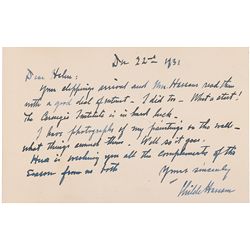 Dec 22nd 1931
Dear Helen:
Your clippings arrived and Mrs. Hassam read them
with a good deal of interest. I did to. What a start!
The Carnegie Institute is in hard luck.
I have photographs of my paintings on the wall-
what things around them. Well so it goes.
Here is wishing you all the compliments of the
Season from us both
Yours sincerely
Childe Hassam